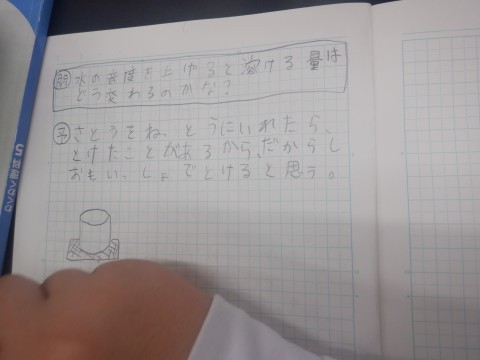 問 水の音度を上げると溶ける量は
どう変わるのかな?
予 さとうをね、とうにいれたら、
とけたことがあるからだからし
おもいっしょでとけると思う。